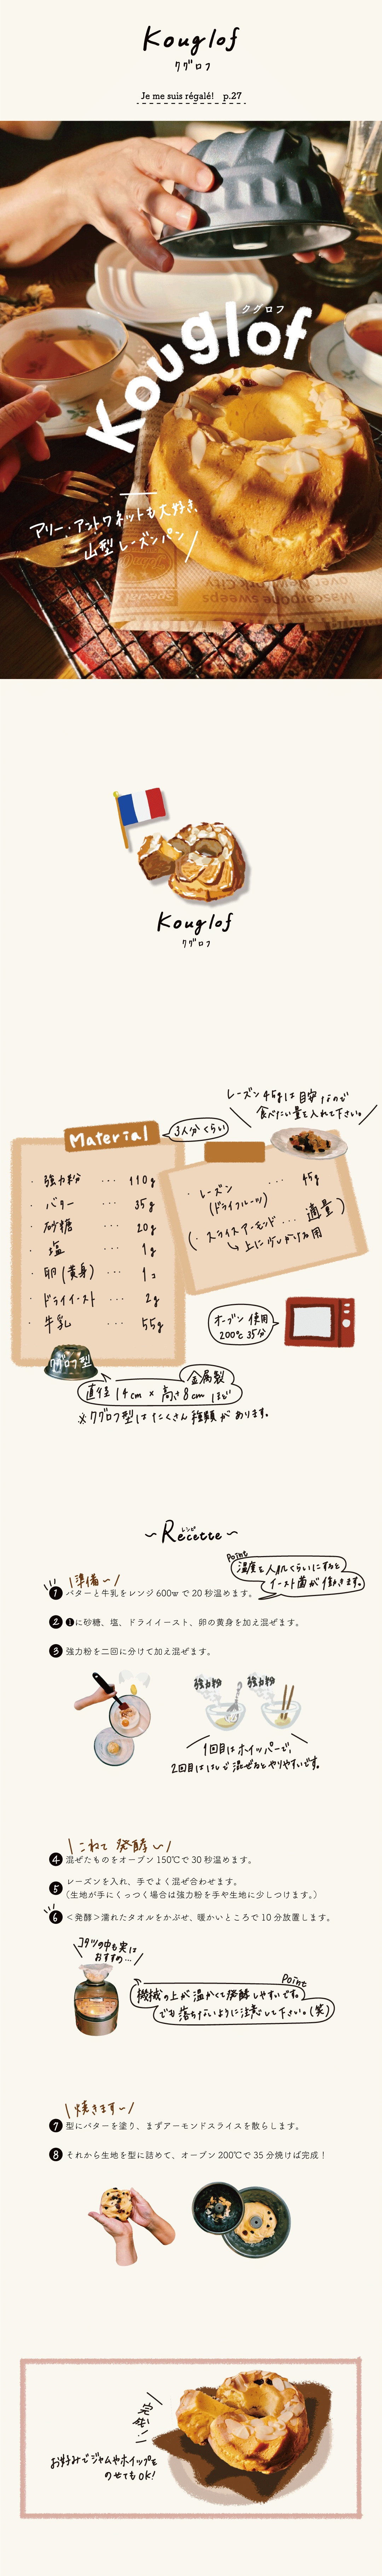 Kouglof
クグロフ
Je me suis régalé! p.27
クグロフ
Kouglof
アリー・アントワネットも大好き、
山型レーズンパン
Kouglof
クグロフ
レーズン45gは目安なので
食べたい量を入れて下さい。
Material
3人分くらい
・強力粉 ··· 110g
・バター ··· 35g
・砂糖 ··· 20g
・塩 ··· 1g
・卵(黄身) ··· 1コ
・ドライイースト ··· 2g
・牛乳 ··· 55g
・レーズン ··· 45g
(ドライフルーツ)
(・スライスアーモンド ··· 適量)
上にふりかける用
オーブン使用
200℃ 35分
クグロフ型
金属製
直径14cm × 高さ8cmほど
※クグロフ型はたくさん種類があります。
レシピ
~Recette~
準備~
Point
温度を人肌くらいにすると
イースト菌が働きます。
1 バターと牛乳をレンジ600wで20秒温めます。
2 ❶に砂糖、塩、ドライイースト、卵の黄身を加え混ぜます。
3 強力粉を二回に分けて加え混ぜます。
強力粉
強力粉
1回目はホイッパーで、
2回目ははしで混ぜるとやりやすいです。
こねて 発酵~
4 混ぜたものをオーブン150℃で30秒温めます。
5 レーズンを入れ、手でよく混ぜ合わせます。
(生地が手にくっつく場合は強力粉を手や生地に少しつけます。)
6 <発酵>濡れたタオルをかぶせ、暖かいところで10分放置します。
コタツの中も実は
おすすめ…
Point
機械の上が温かくて発酵しやすいです。
でも落ちないように注意して下さい。(笑)
焼きます~
7 型にバターを塗り、まずアーモンドスライスを散らします。
8 それから生地を型に詰めて、オーブン200℃で35分焼けば完成！
完成!
お好みでジャムやホイップを
のせてもOK!